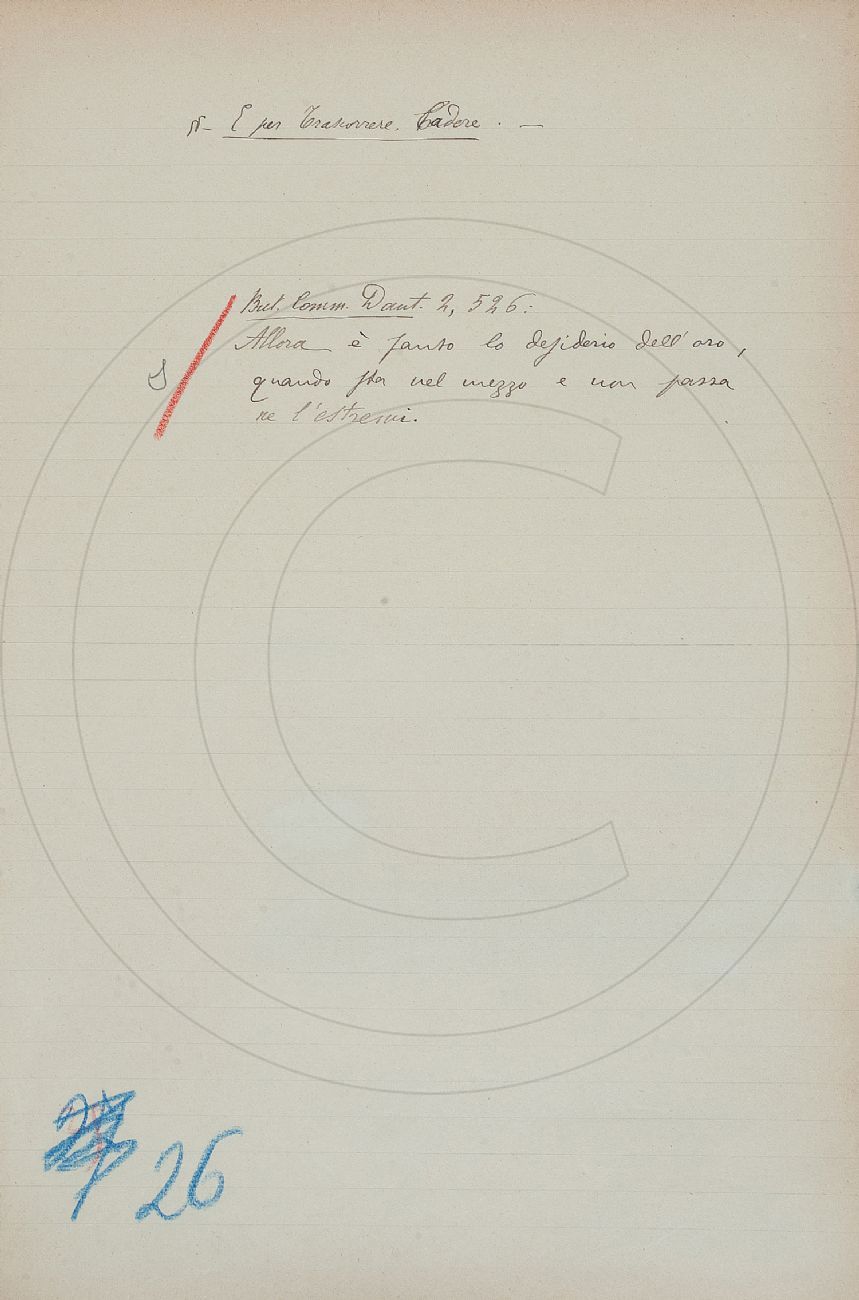 § – E per Trascorrere. Cadere. —
But. Comm. Dant. 2, 526:
Allora è santo lo desiderio dell'oro,
quando sta nel mezzo e non passa
ne l'estremi.
26